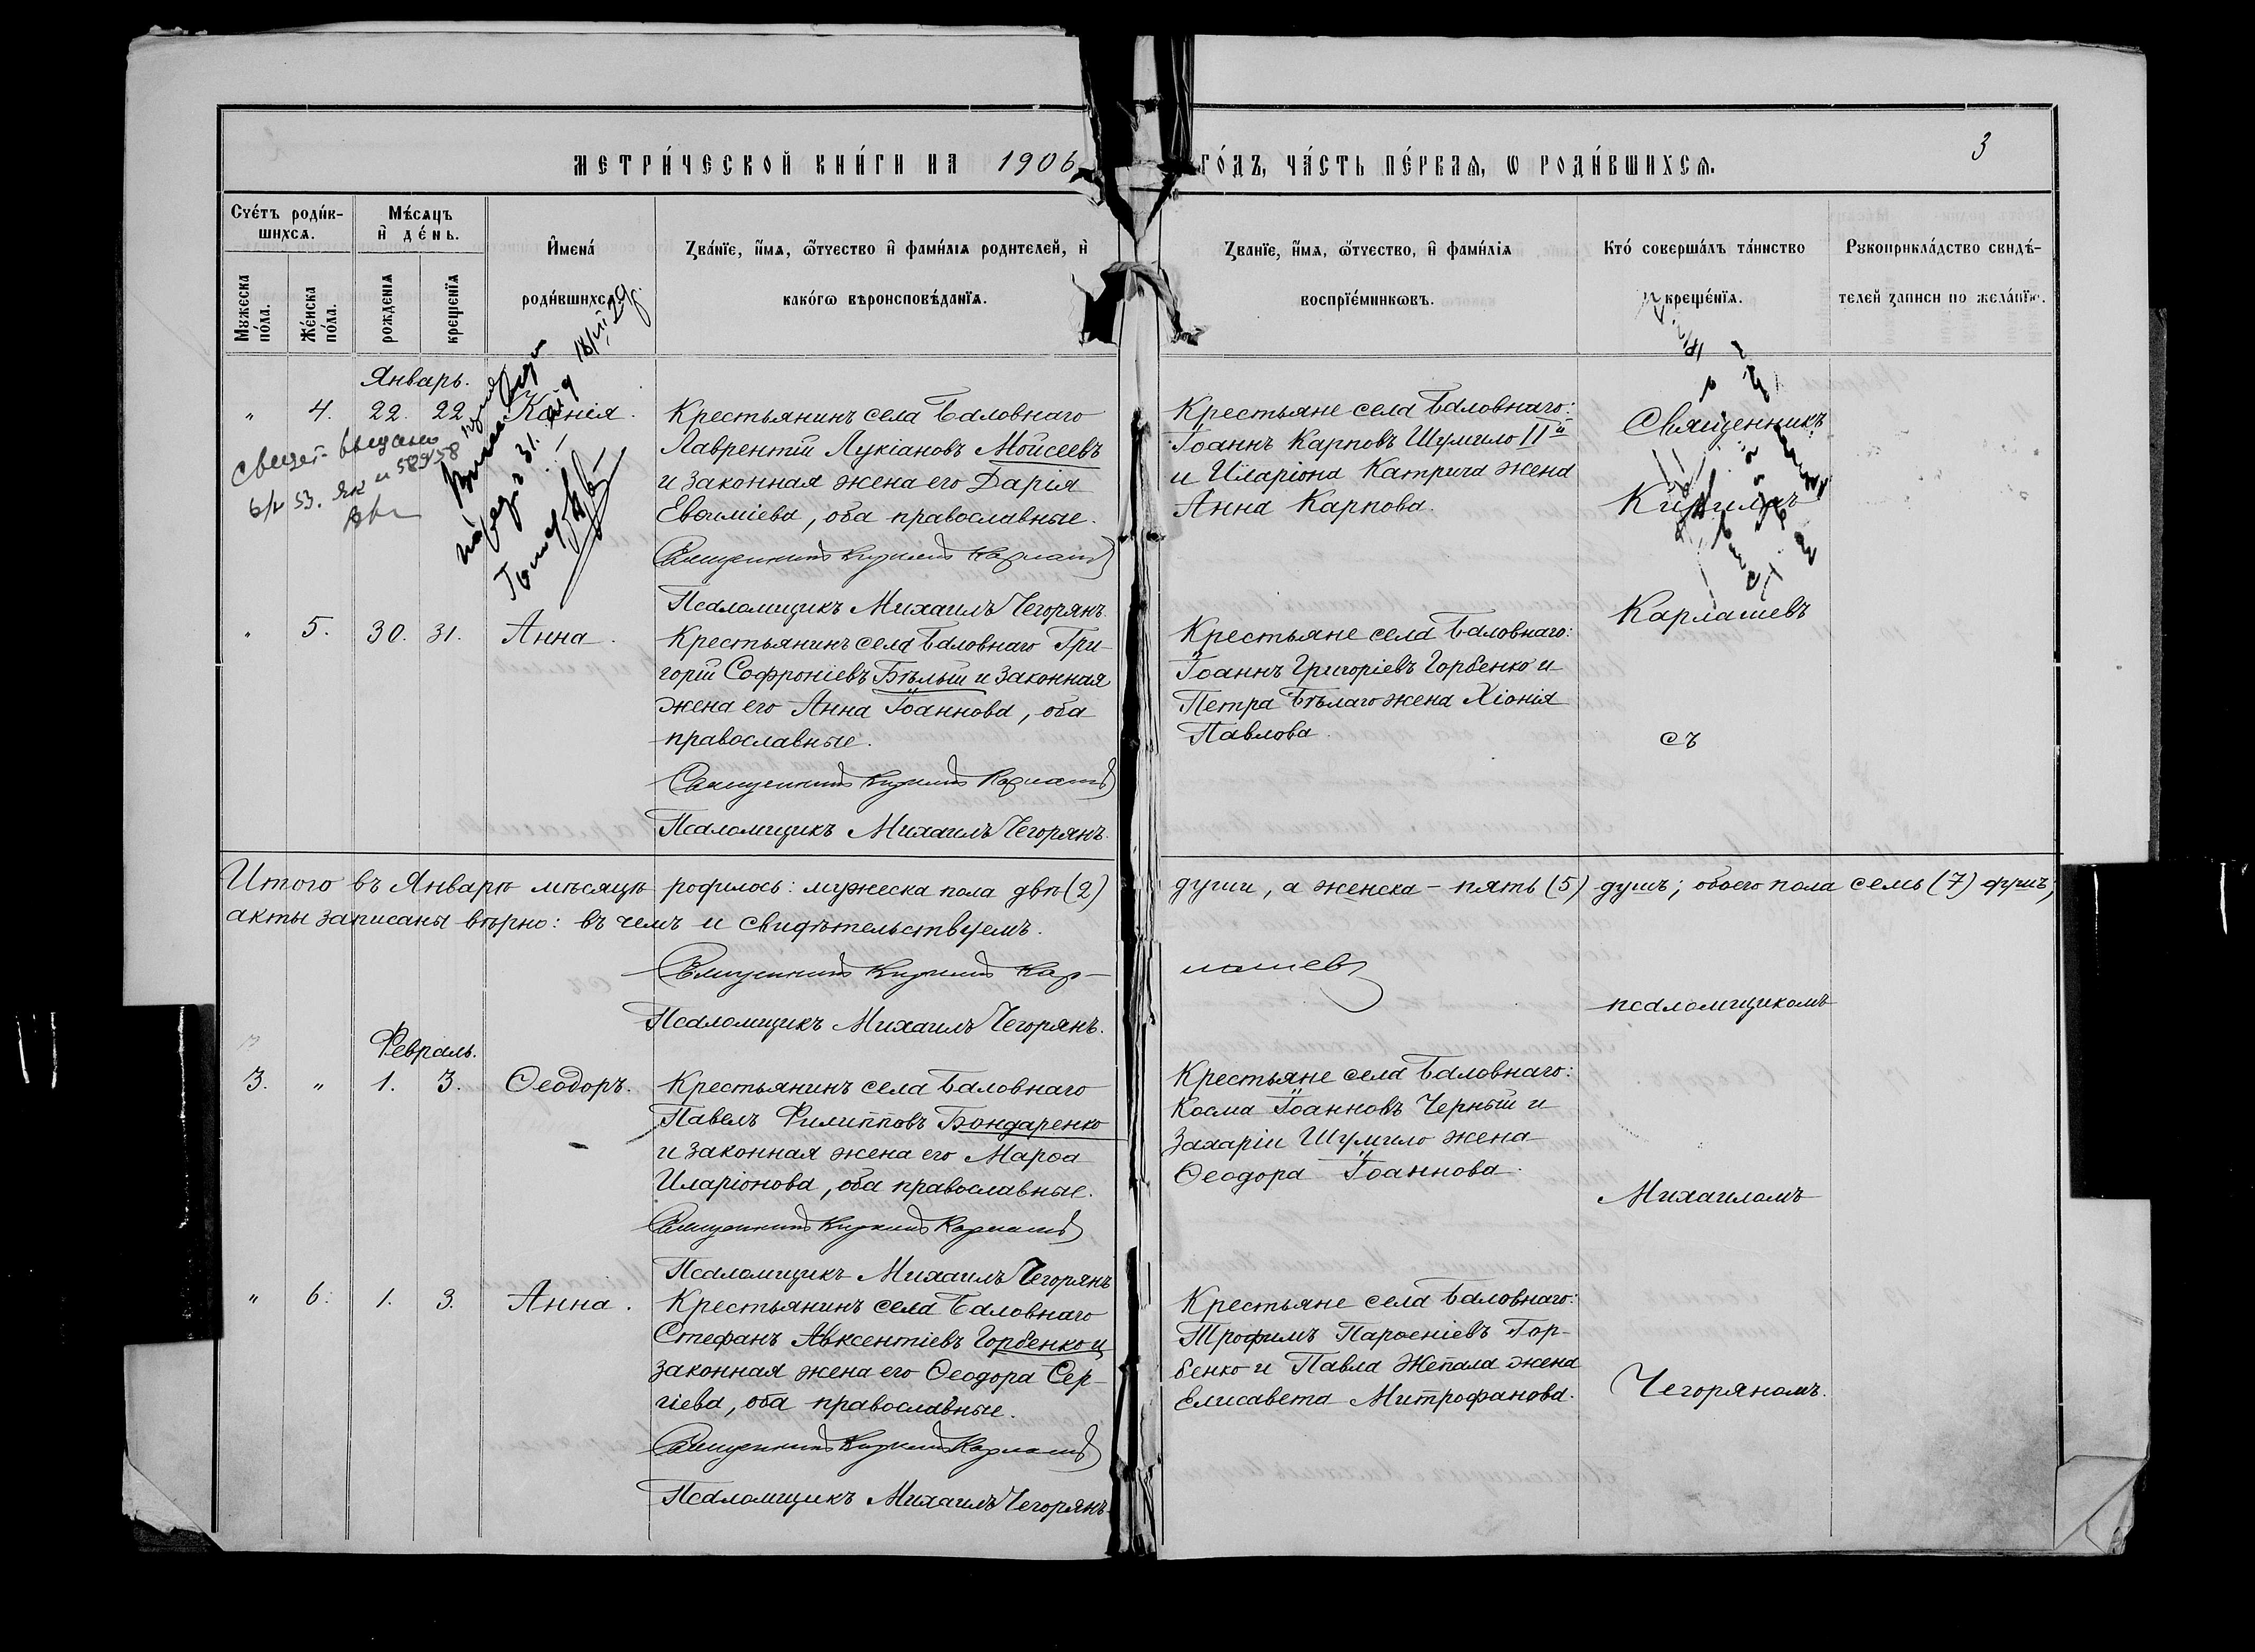 МЕТРИ́ЧЕСКОЙ КНИ́ГИ НА 1906 ГО́ДЪ, ЧА́СТЬ ПЕ́РВАѦ, Ѡ РОДИ́ВШИХСѦ.
3
Сче́тъ роди́в-
шихсѧ.
Мꙋжеска по́ла.
Же́нска по́ла.
Мѣ́сѧцъ
и҆ де́нь.
рожденїѧ
крещенїѧ
И҆мена́
роди́вшихсѧ.
Зва́нїе, и҆́мѧ, ѻ҆́тчество и҆ фами́лїѧ родителей, и҆
како́гѡ вѣроисповѣ́данїѧ.
Зва́нїе, и҆́мѧ, ѻ҆́тчество, и҆ фами́лїѧ
воспрїе́мникѡвъ.
Кто́ соверша́лъ та́инство
креще́нїѧ.
Рꙋкоприкла́дство свидѣ́-
телей записи по жела́нїю.
Январь.
" 4. 22. 22. Ксенія.
Крестьянинъ села Баловнаго
Лаврентій Лукіановъ Моисеевъ
и законная жена его Дарія
Евѳиміева, оба православные.
Священникъ Кириллъ Карлашевъ
Псаломщикъ Михаилъ Чегорянъ.
Крестьяне села Баловнаго:
Іоаннъ Карповъ Шумило II й
и Иларіона Катрича жена
Анна Карпова.
Священникъ
Кириллъ
Карлашевъ
съ
псаломщикомъ
Михаиломъ
Чегоряномъ.
18/VII 29 г.
" 5. 30. 31. Анна.
Крестьянинъ села Баловнаго Гри-
горій Софроніевъ Бѣлый и законная
жена его Анна Іоаннова, оба
православные.
Священникъ Кириллъ Карлашевъ
Псаломщикъ Михаилъ Чегорянъ.
Крестьяне села Баловнаго:
Іоаннъ Григоріевъ Горбенко и
Петра Бѣлаго жена Хіонія
Павлова.
Итого въ Январѣ мѣсяцѣ родилось: мужеска пола двѣ (2) души, а женска – пять (5) душъ; обоего пола семь (7) душъ;
акты записаны вѣрно: въ чемъ и свидѣтельствуемъ.
Священникъ Кириллъ Кар-
лашевъ
Псаломщикъ Михаилъ Чегорянъ.
Февраль.
3. " 1. 3. Ѳеодоръ.
Крестьянинъ села Баловнаго
Павелъ Филипповъ Бондаренко
и законная жена его Марѳа
Иларіонова, оба православные.
Священникъ Кириллъ Карлашевъ
Псаломщикъ Михаилъ Чегорянъ
Крестьяне села Баловнаго:
Косма Іоанновъ Черный и
Захаріи Шумило жена
Ѳеодора Іоаннова.
" 6. 1. 3. Анна.
Крестьянинъ села Баловнаго
Стефанъ Авксентіевъ Горбенко и
законная жена его Ѳеодора Сер-
гіева, оба православные.
Священникъ Кириллъ Карлашевъ
Псаломщикъ Михаилъ Чегорянъ.
Крестьяне села Баловнаго:
Трофимъ Парѳеніевъ Гор-
бенко и Павла Жепала жена
Елисавета Митрофанова.